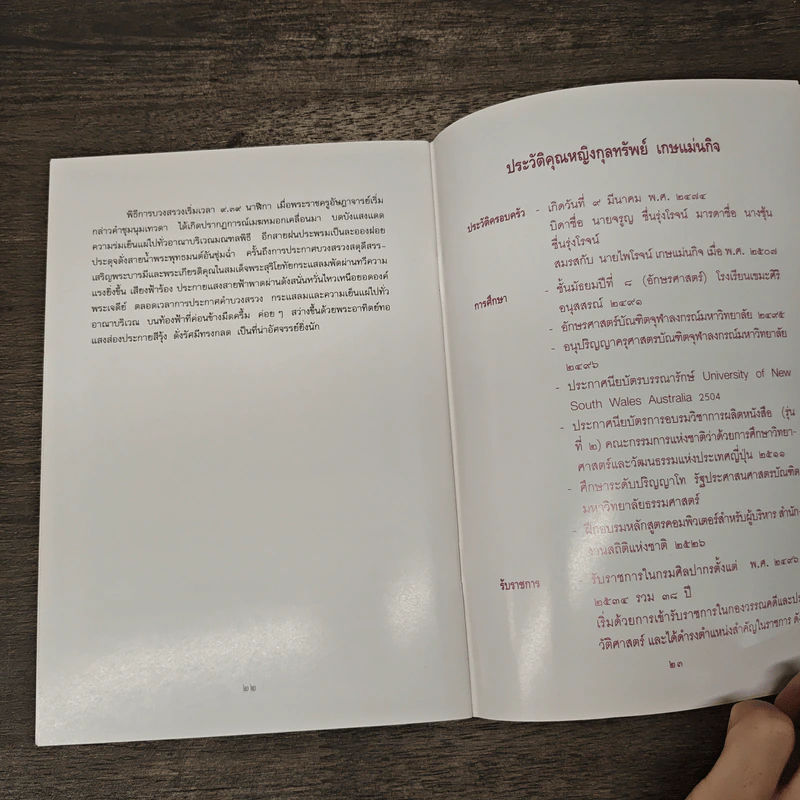 พิธีการบวงสรวงเริ่มเวลา ๙.๓๙ นาฬิกา เมื่อพระราชครูอัษฎาจารย์เริ่ม
กล่าวคำชุมนุมเทวดา ได้เกิดปรากฏการณ์เมฆหมอกเคลื่อนมา บดบังแสงแดด
ความร่มเย็นแผ่ไปทั่วอาณาบริเวณมณฑลพิธี อีกสายฝนประพรมเป็นละอองฝอย
ประดุจดั่งสายน้ำพระพุทธมนต์อันชุ่มฉ่ำ ครั้นถึงการประกาศบวงสรวงสดุดีสรร-
เสริญพระบารมีและพระเกียรติคุณในสมเด็จพระสุริโยทัยกระแสลมพัดผ่านทวีความ
แรงยิ่งขึ้น เสียงฟ้าร้อง ประกายแสงสายฟ้าพาดผ่านดังสนั่นหวั่นไหวเหนือยอดองค์
พระเจดีย์ ตลอดเวลาการประกาศคำบวงสรวง กระแสลมและความเย็นแผ่ไปทั่ว
อาณาบริเวณ บนท้องฟ้าที่ค่อนข้างมืดครึ้ม ค่อย ๆ สว่างขึ้นด้วยพระอาทิตย์ทอ
แสงส่องประกายสีรุ้ง ดั่งรัศมีทรงกลด เป็นที่น่าอัศจรรย์ยิ่งนัก
๒๒
ประวัติคุณหญิงกุลทรัพย์ เกษแม่นกิจ
ประวัติครอบครัว - เกิดวันที่ ๙ มีนาคม พ.ศ. ๒๔๗๔
บิดาชื่อ นายจรูญ ชื่นรุ่งโรจน์ มารดาชื่อ นางชุ้น
ชื่นรุ่งโรจน์
สมรสกับ นายไพโรจน์ เกษแม่นกิจ เมื่อ พ.ศ. ๒๕๐๗
การศึกษา - ชั้นมัธยมปีที่ ๘ (อักษรศาสตร์) โรงเรียนเขมะศิริ
อนุสสรณ์ ๒๔๙๑
- อักษรศาสตร์บัณฑิตจุฬาลงกรณ์มหาวิทยาลัย ๒๔๙๕
- อนุปริญญาครุศาสตรบัณฑิตจุฬาลงกรณ์มหาวิทยาลัย
๒๔๙๖
- ประกาศนียบัตรบรรณารักษ์ University of New
South Wales Australia 2504
- ประกาศนียบัตรการอบรมวิชาการผลิตหนังสือ (รุ่น
ที่ ๒) คณะกรรมการแห่งชาติว่าด้วยการศึกษาวิทยา-
ศาสตร์และวัฒนธรรมแห่งประเทศญี่ปุ่น ๒๕๑๑
- ศึกษาระดับปริญญาโท รัฐประศาสนศาสตรบัณฑิต
มหาวิทยาลัยธรรมศาสตร์
- ฝึกอบรมหลักสูตรคอมพิวเตอร์สำหรับผู้บริหาร สำนัก-
งานสถิติแห่งชาติ ๒๕๒๖
รับราชการ - รับราชการในกรมศิลปากรตั้งแต่ พ.ศ. ๒๔๙๖
๒๕๓๔ รวม ๓๘ ปี
เริ่มด้วยการเข้ารับราชการในกองวรรณคดีและประ
วัติศาสตร์ และได้ดำรงตำแหน่งสำคัญในราชการ
๒๓